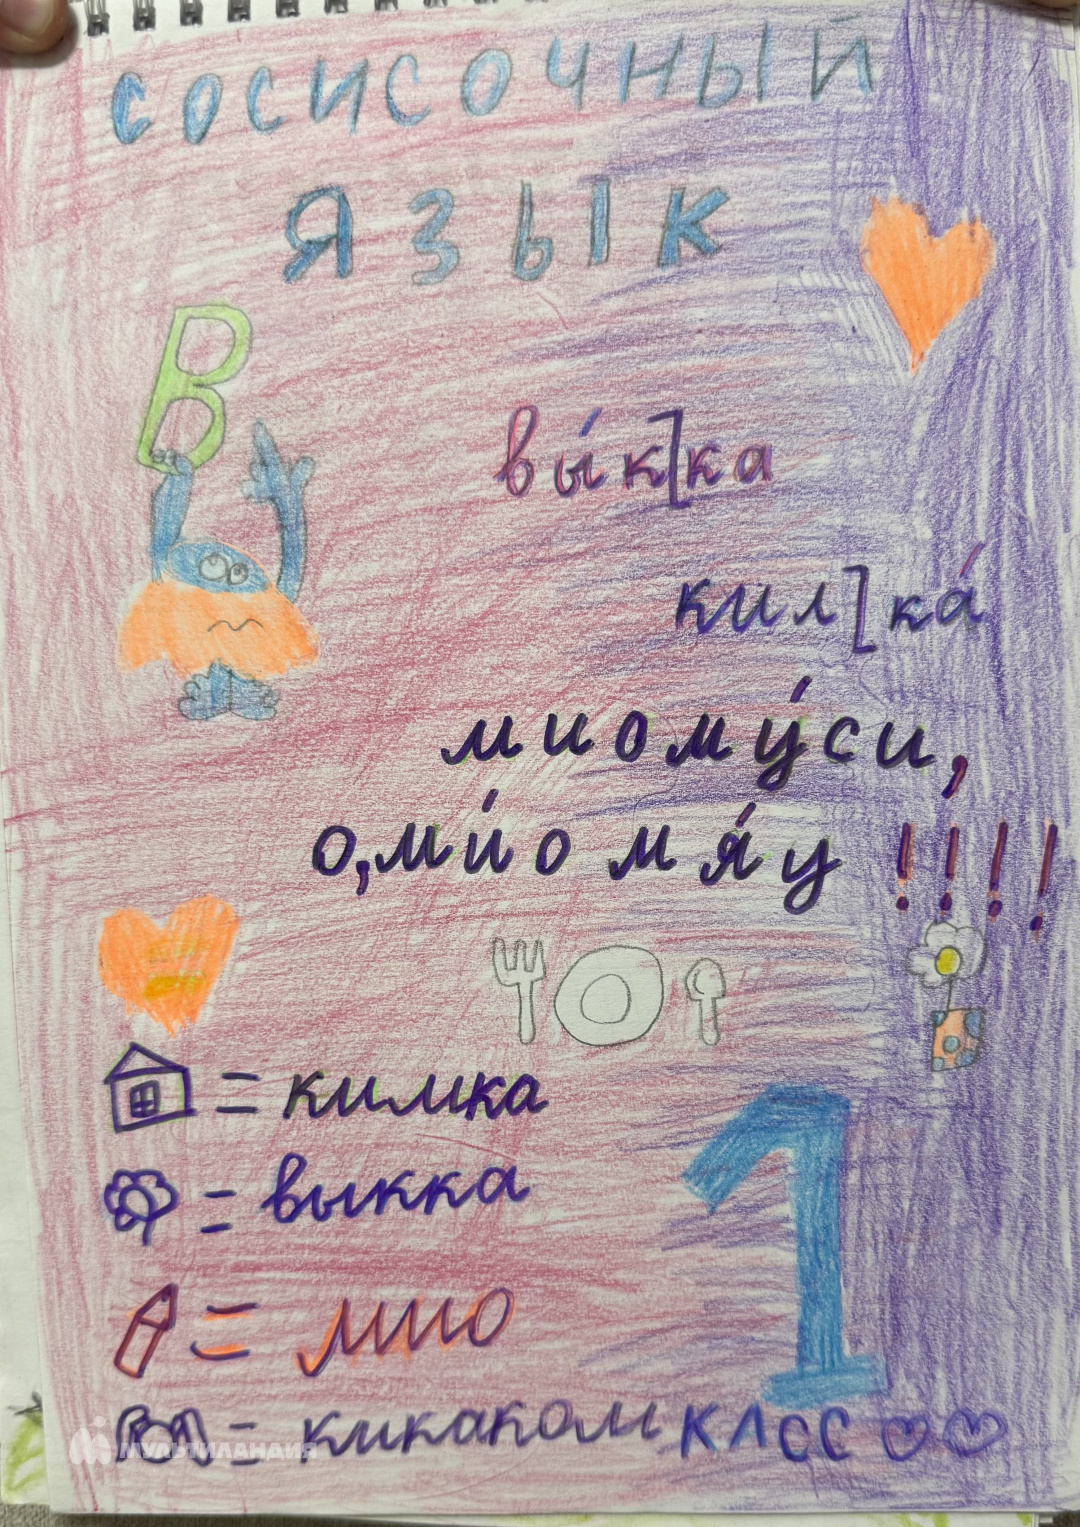 сосисочный
язык
В
вы́к]ка
кил]ка́
миому́си,
о,ми́о мя́у !!!!
= кимка
= выкка
= мио
= кикаком
1
класс
мультиландия